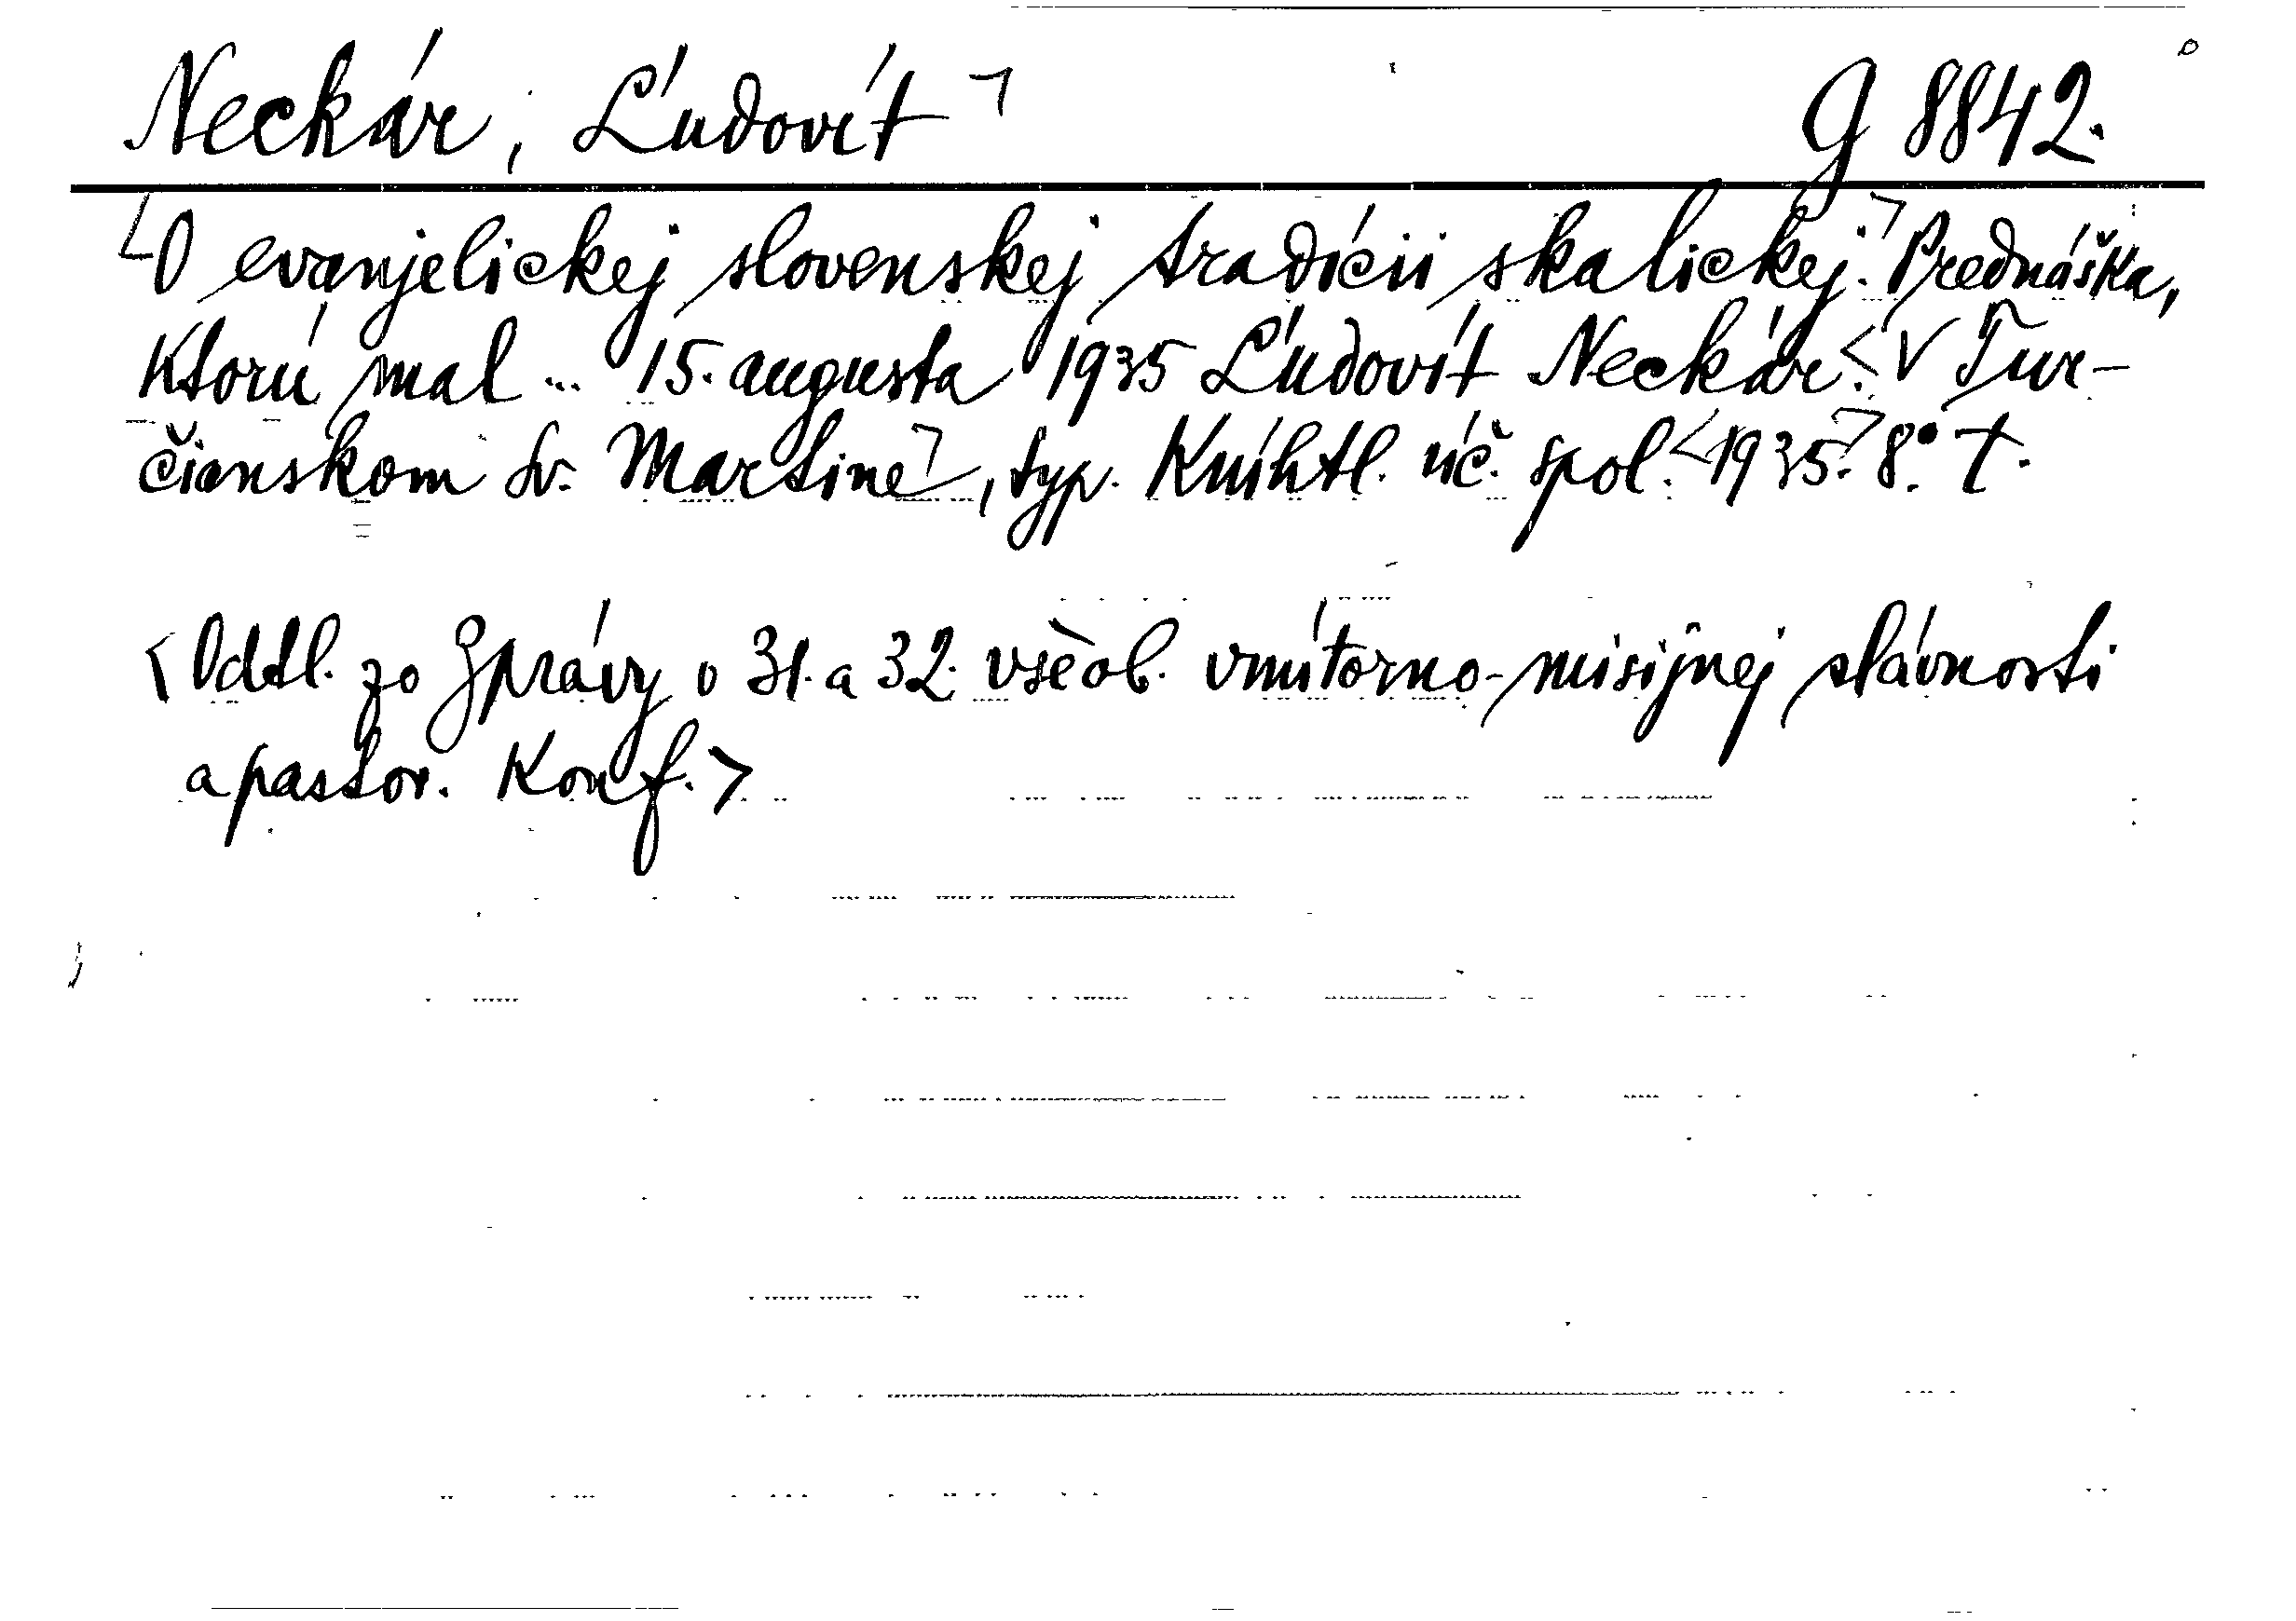 Neckár, Ľudovít ㄱ G 8842.
└O evanjelickej slovenskej tradícii skalickej.ㄱ Prednáška,
ktorú mal ... 15. augusta 1935 Ľudovít Neckár. < V Tur-
čianskom Sv. Martineㄱ, typ. Kníhtl. úč. spol. <1935.ㄱ 8° T.
<Odtl. zo Zprávy o 31. a 32. všeob. vnútorno-misijnej slávnosti
a pastor. konf.>